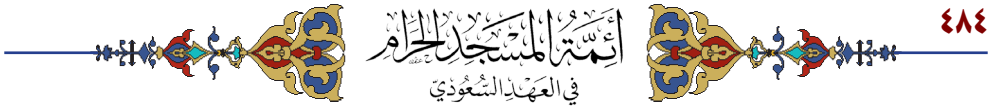 ٤٨٤
أَئِمَّةُ المَسْجِدِ الحَرَامِ
فِي العَهْدِ السُّعُودِيِّ